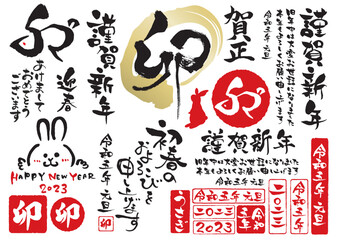 卯
謹賀新年
迎春
あけまして
おめでとう
ございます
HAPPY NEW YEAR
2023
卯
卯
令和五年 元旦
卯
初春の
およろこびを
申し上げます
賀正
令和五年 元旦
卯
謹賀新年
旧年中は大変お世話になりました
本年もよろしくお願い申し上げます
謹賀新年
旧年中は大変お世話になりました
本年もよろしくお願い申し上げます
うさぎ
令和五年 元旦
2023
2023
令和五年
元旦
二〇二三
令和五年 元旦